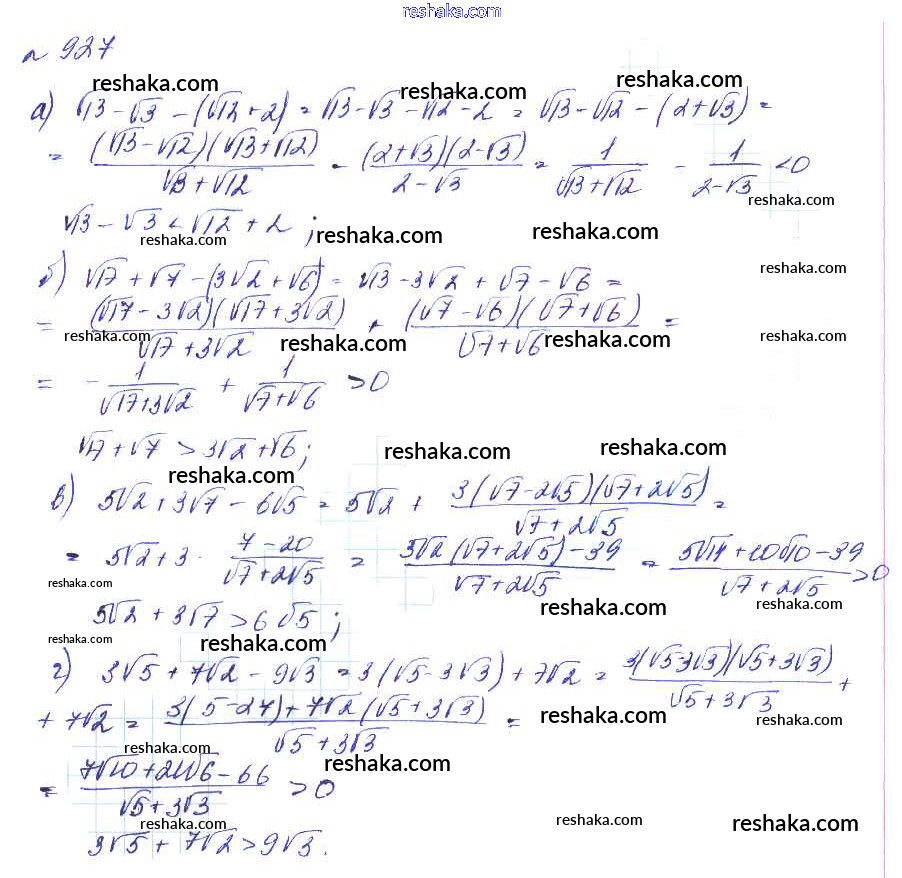 reshaka.com
№ 927
reshaka.com reshaka.com reshaka.com
а) √13 - √3 - (√12 + 2) = √13 - √3 - √12 - 2 = √13 - √12 - (2 + √3) =
= (√13 - √12)(√13 + √12) / √13 + √12 - (2 + √3)(2 - √3) / 2 - √3 = 1 / √13 + √12 - 1 / 2 - √3 < 0
reshaka.com reshaka.com
√13 - √3 < √12 + 2 ;
reshaka.com reshaka.com reshaka.com
б) √17 + √7 - (3√2 + √6) = √13 - 3√2 + √7 - √6 =
reshaka.com reshaka.com
= (√17 - 3√2)(√17 + 3√2) / √17 + 3√2 + (√7 - √6)(√7 + √6) / √7 + √6 =
reshaka.com reshaka.com reshaka.com reshaka.com
= - 1 / √17 + 3√2 + 1 / √7 + √6 > 0
√17 + √7 > 3√2 + √6 ;
reshaka.com reshaka.com reshaka.com
в) 5√2 + 3√7 - 6√5 = 5√2 + 3(√7 - 2√5)(√7 + 2√5) / √7 + 2√5 =
= 5√2 + 3 · 7 - 20 / √7 + 2√5 = 5√2(√7 + 2√5) - 39 / √7 + 2√5 = 5√14 + 10√10 - 39 / √7 + 2√5 > 0
reshaka.com reshaka.com reshaka.com
5√2 + 3√7 > 6√5 ;
reshaka.com reshaka.com
г) 3√5 + 7√2 - 9√3 = 3(√5 - 3√3) + 7√2 = 3(√5 3√3)(√5 + 3√3) / √5 + 3√3 +
+ 7√2 = 3(5 - 27) + 7√2(√5 + 3√3) / √5 + 3√3 =
reshaka.com reshaka.com reshaka.com
reshaka.com
= 7√10 + 21√6 - 66 / √5 + 3√3 > 0
reshaka.com reshaka.com reshaka.com
3√5 + 7√2 > 9√3.